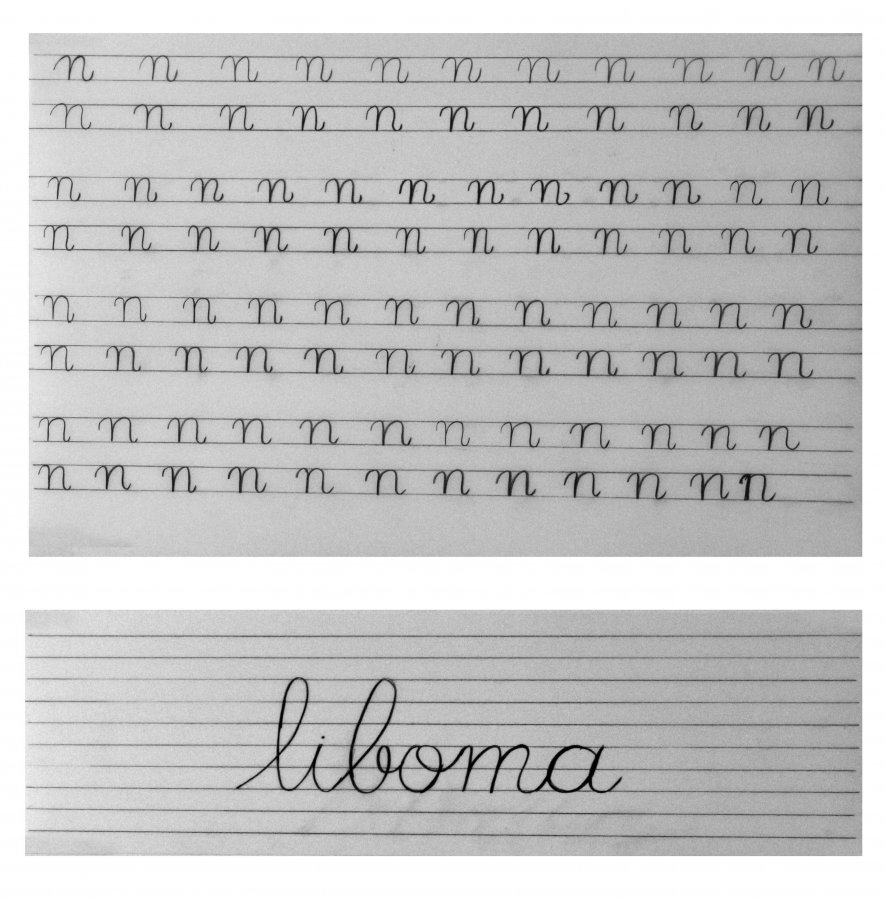 n n n n n n n n n n n
n n n n n n n n n n n
n n n n n n n n n n n n
n n n n n n n n n n n n
n n n n n n n n n n n n
n n n n n n n n n n n n
n n n n n n n n n n n n
n n n n n n n n n n n n
liboma